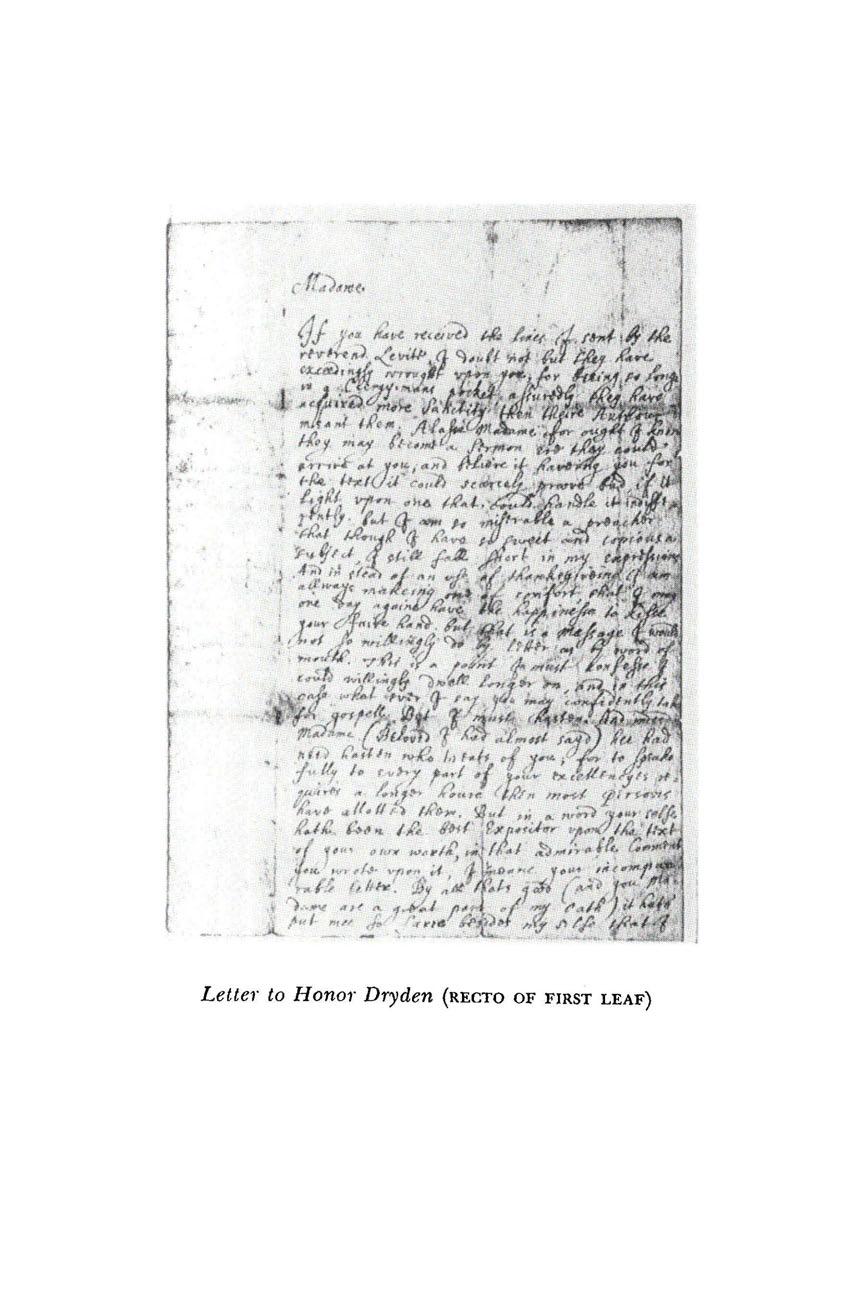 Madame
If you have received the lines I sent by the
reverend Levite, I doubt not but they have
exceedingly wrought upon you; for beeing so longe
in a Clergy-mans pocket, assuredly they have
acquired more Sanctity then theire Authour
meant them. Alasse Madame for ought I know
they may become a Sermon ere they could
arrive at you; and believe it haveing you for
the text it could scarcely proove bad if it
light upon one that could handle it indiffe
rently. but I am so miserable a preacher
that though I have so sweet and copious a
subject, I still fall short in my expressions
And in stead of an use of thanksgiveing I am
allways makeing one of comfort, that I may
one day againe have the happinesse to kisse
your faire hand. but that is a Message I would
not so willingly do by letter as by word of
mouth. This is a point I must confesse I
could willingly dwell longer on, and in this
case what ever I say you may confidently take
for gospell. But I must hasten. And indeed
Madame (Beloved I had almost sayd) hee had
need hasten who treats of you; for to speake
fully to every part of your excellencyes re-
quires a longer houre then most persons
have allotted them. But in a word your selfe
hath been the best Expositor upon the text
of your own worth, in that admirable Comment
you wrote upon it, I meane your incompa
rable letter. By all thats good (and you Ma-
dame are a great part of my Oath) it hath
put mee so farre besides my selfe that I
Letter to Honor Dryden (RECTO OF FIRST LEAF)